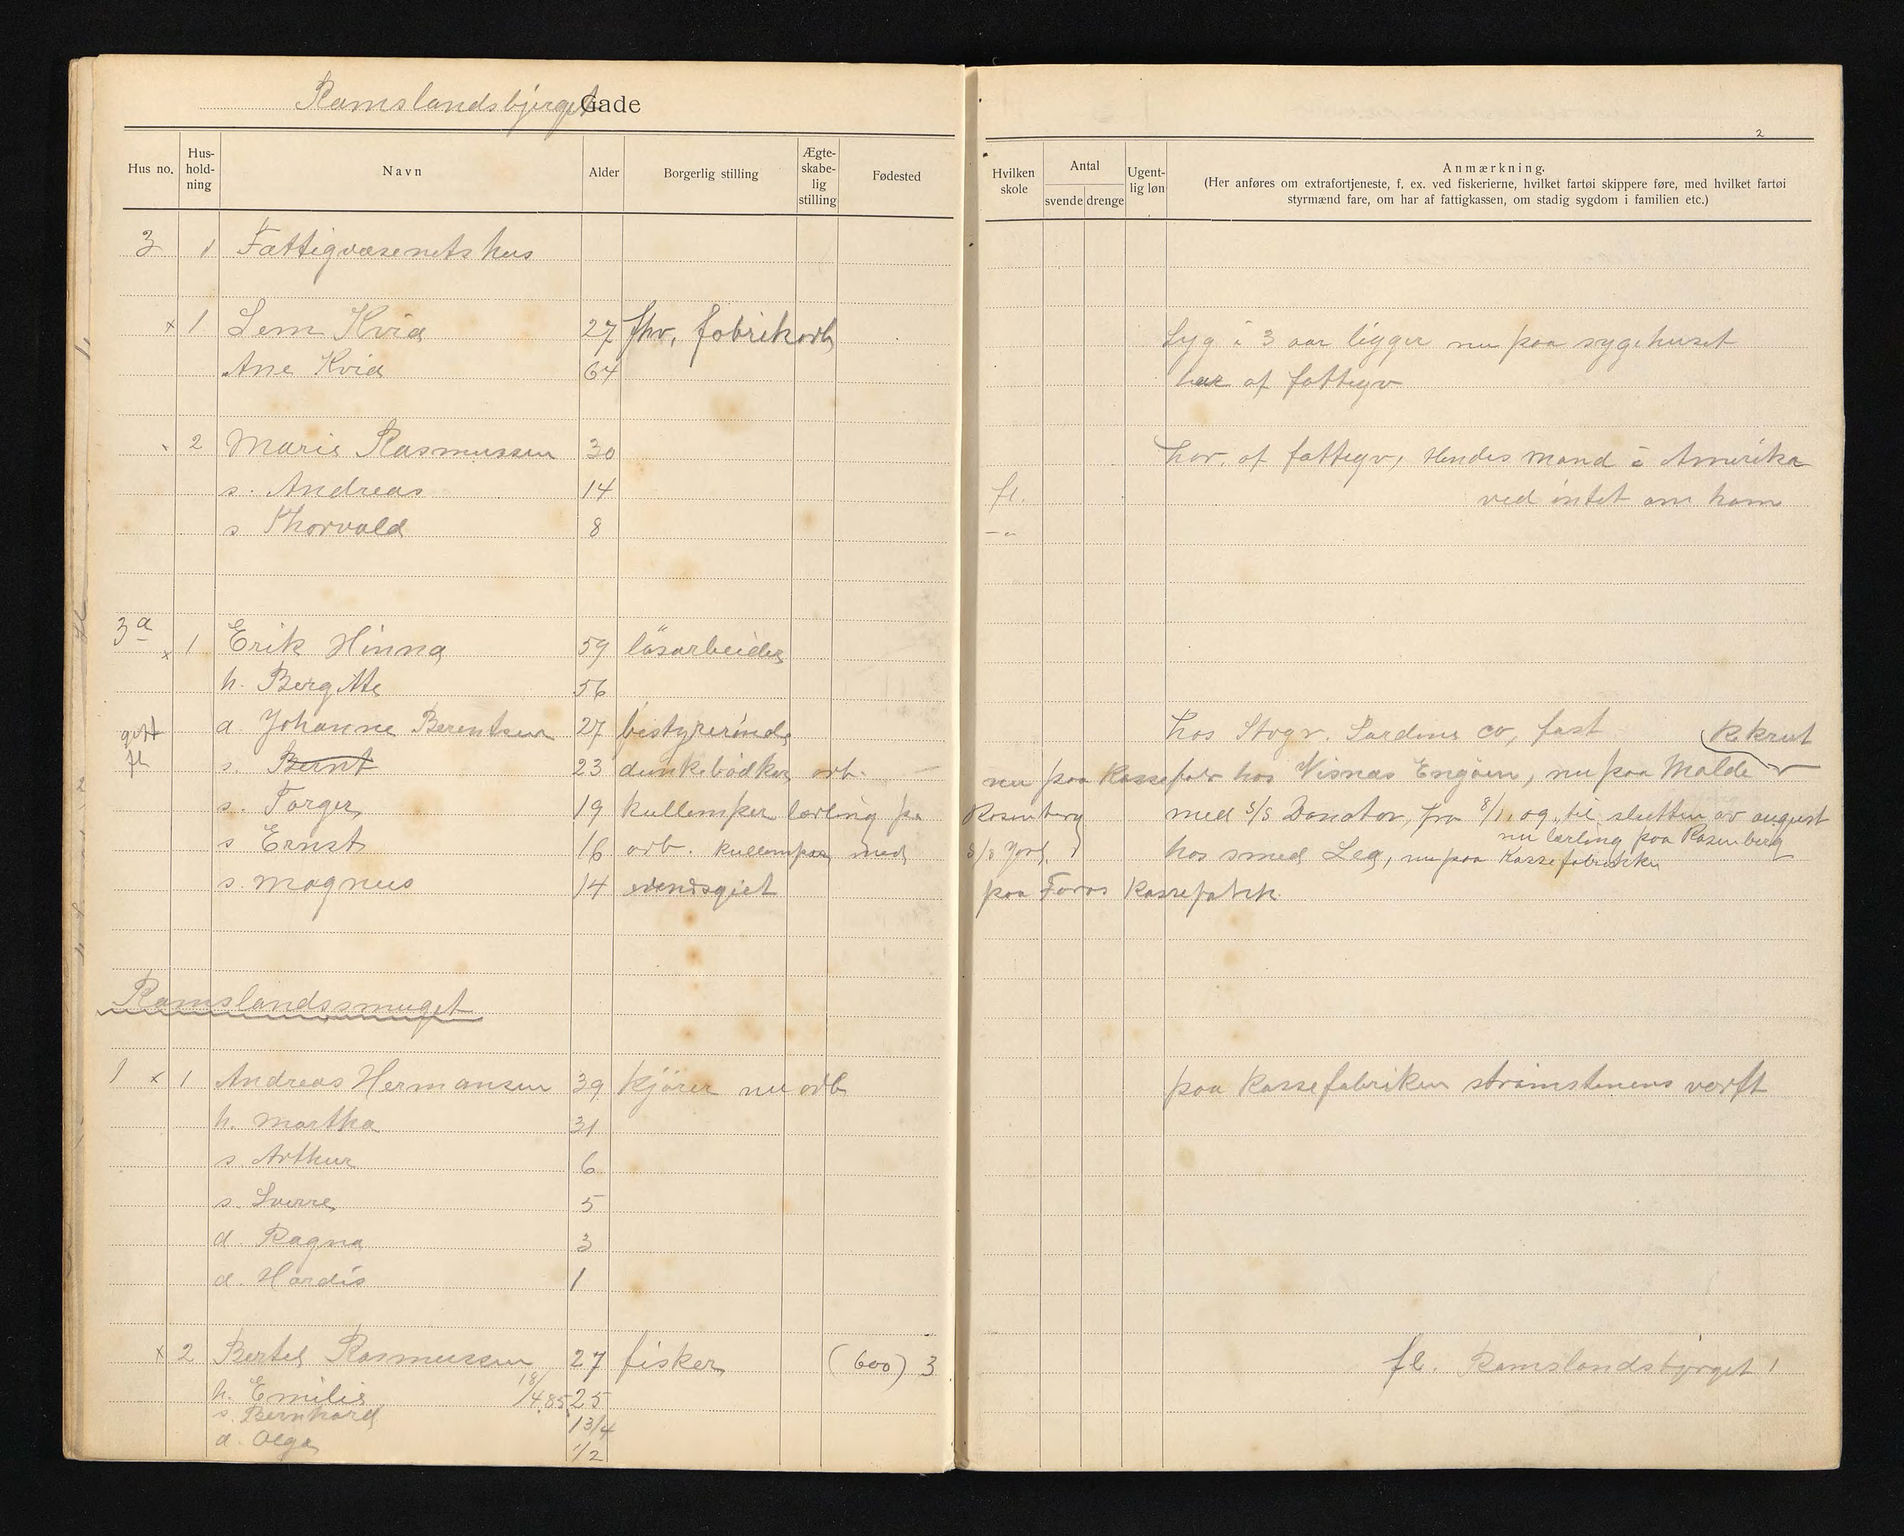 Ramslandsbjerget Gade
2
Hus no. Hus-hold-ning Navn Alder Borgerlig stilling Ægte-skabe-lig stilling Fødested Hvilken skole Antal svende drenge Ugent-lig løn Anmærkning.
(Her anføres om extrafortjeneste, f. ex. ved fiskerierne, hvilket fartøi skippere føre, med hvilket fartøi
styrmænd fare, om har af fattigkassen, om stadig sygdom i familien etc.)
3 Fattigvæsenets hus
x 1 Lem Kvia 27 fhv. fabrikarb Syg i 3 aar ligger nu paa sygehuset
Ane Kvia 64 har af fattigv
2 Marie Rasmussen 30 har. af fattigv, Hendes mand i Amerika
s. Andreas 14 fl. ved intet om ham
s Thorvald 8 -"-
3a x 1 Erik Hinna 59 løsarbeider
h. Bergitte 56
d. Johanne Berentsen 27 bestyrerinde hos Stvgr. Sardine co, fast Rekrut
gift fl s. Bernt 23 dunkebødker arb. nu paa Kassefabr hos Visnæs Engøen, nu paa Molde
s. Torger 19 kullemper lærling pa Rosenberg med S/S Donator fra 8/1 og til slutten av august
nu lærling paa Rosenberg
s Ernst 16 arb. kullemper med hos smed Lea, nu paa Kassefabrikken
s. Magnus 14 paa Foros Kassefabrik
Ramslandssmuget
1 x 1 Andreas Hermansen 39 kjører nu arb paa Kassefabriken strømstenens verft
h. Martha 31
s. Arthur 6
s. Sverre 5
d. Ragna 3
d. Hardis 1
x 2 Bertel Rasmussen 27 fisker (600) 3 fl. Ramslandsbjerget 1
h. Emilie 18/4.85. 25
s. Bernhard 1 3/4
d. Olga 1/2